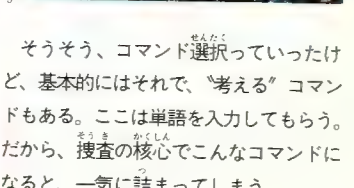 そうそう、コマンド選択っていったけ
ど、基本的にはそれで、〝考える〟コマン
ドもある。ここは単語を入力してもらう。
だから、捜査の核心でこんなコマンドに
なると、一気に詰まってしまう